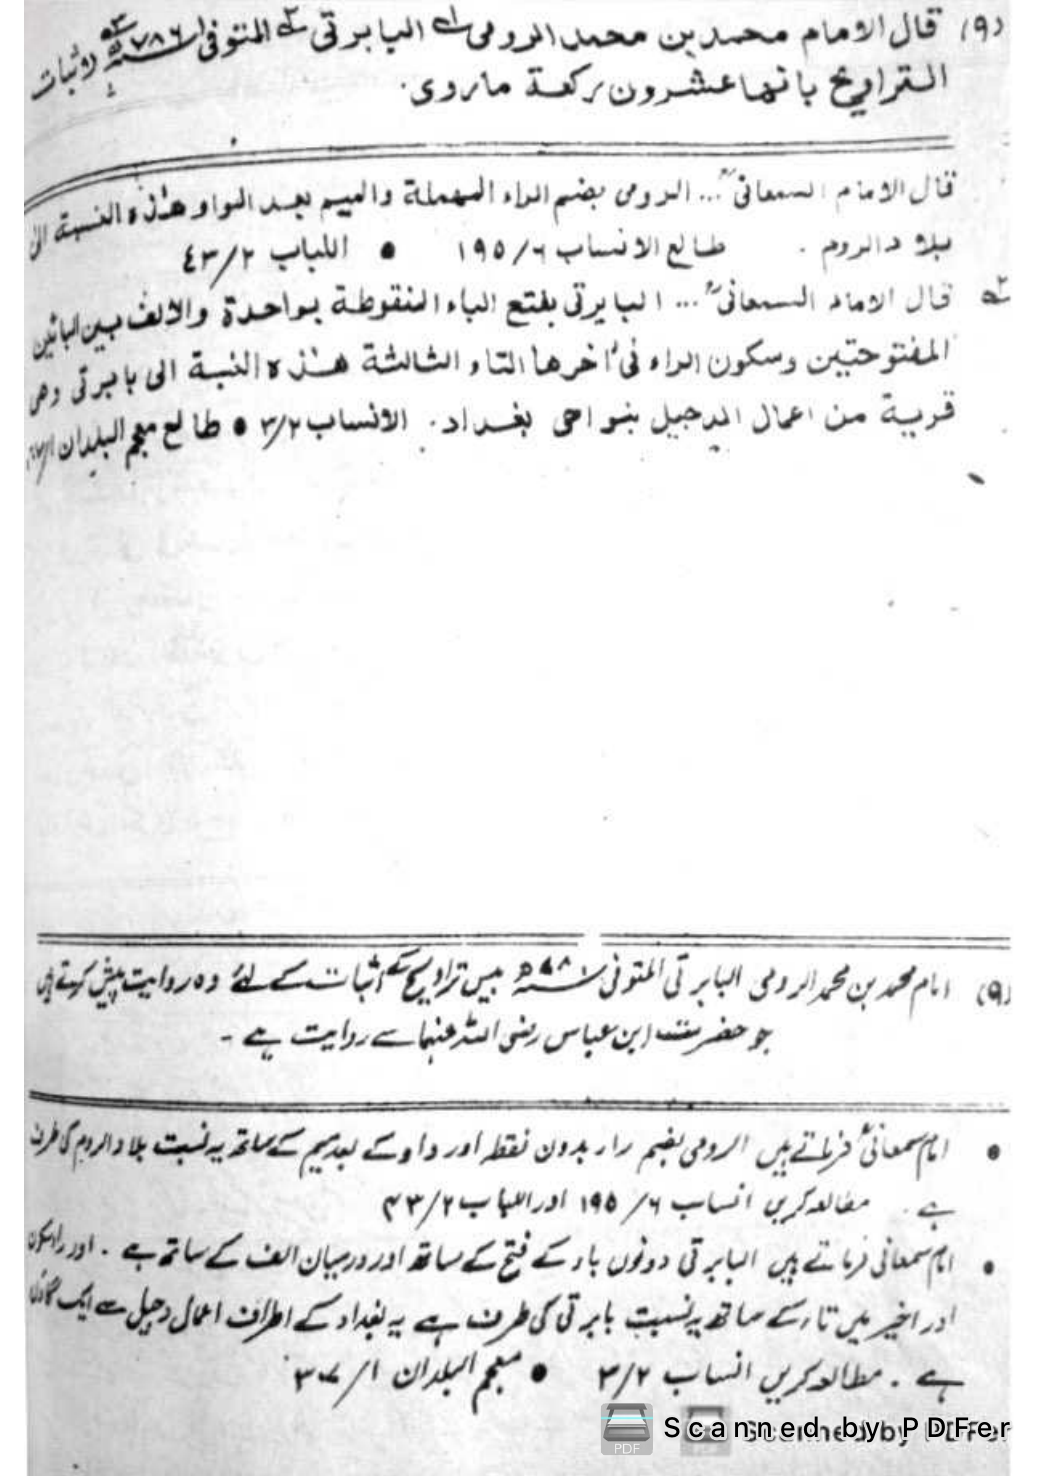 (٩) قال الامام محمد بن محمد الرومی البابرتی المتوفی ٧٨٦ھ وثبات
التراویح بانھا عشرون رکعة ماروی.
قال الامام السمعانیؒ ... الرومی بضم الراء المھملة والمیم بعد الواو ھٰذہ النسبة الی
بلاد الروم . طالع الانساب ١٩٥/٦ ● اللباب ٤٣/٢
قال الامام السمعانیؒ ... البابرتی بفتح الباء المنقوطة بواحدة والالف بین البائین
المفتوحتین وسکون الراء فی اٰخرھا التاء الثالثة ھٰذہ النسبة الی بابرتی وھی
قریة من اعمال الدجیل بنواحی بغداد. الانساب ٣/٢ ● طالع معجم البلدان
(٩) امام محمد بن محمد الرومی البابرتی المتوفی بیس تراویح کے اثبات کے لئے وہ روایت پیش کرتے ہیں
جو حضرت ابن عباس رضی اللہ عنہما سے روایت ہے ۔
● امام سمعانیؒ فرماتے ہیں الرومی بضم راء بدون نقطہ اور واو کے بعد میم کے ساتھ یہ نسبت بلاد الروم کی طرف
ہے . مطالعہ کریں انساب ٦/ ١٩٥ اور اللباب ٤٣/٢
● امام سمعانی فرماتے ہیں البابرتی دونوں باء کے فتح کے ساتھ اور درمیان الف کے ساتھ ہے . اور راء سکون
اور اخیر میں تاء کے ساتھ یہ نسبت بابرتی کی طرف ہے یہ بغداد کے اطراف اعمال دجیل سے ایک گاؤں
ہے . مطالعہ کریں انساب ٣/٢ ● معجم البلدان ٣٠٧/١
Scanned by PDFer